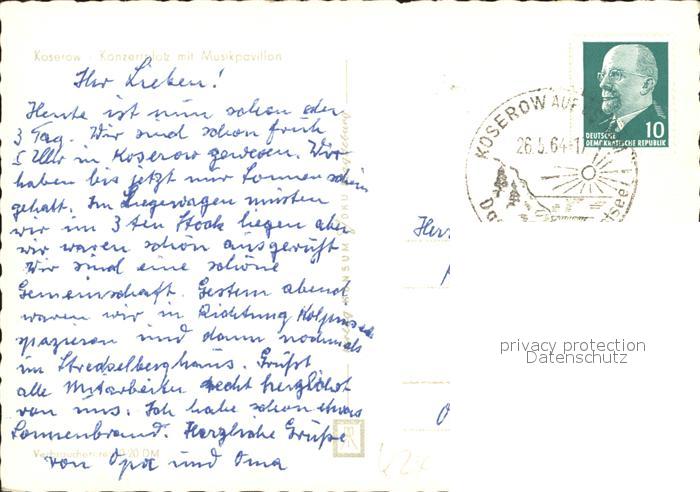 Koserow - Konzertplatz mit Musikpavillon
Ihr Lieben!
Heute ist nun schon der
3 Tag. Wir sind schon früh
5 Uhr in Koserow gewesen. Wir
haben bis jetzt nur Sonnenschein
gehabt. Im Liegewagen mußten
wir im 3ten Stock liegen aber
wir waren schon ausgeruht
Wir sind eine schöne
Gemeinschaft. Gestern abend
waren wir in Richtung Kölpinsee
spazieren und dann nochmals
im Streckelberghaus. Grüßt
alle Mitarbeiter recht herzlichst
von uns. Ich habe schon etwas
Sonnenbrand. Herzliche Grüße
von Opa und Oma
Verbraucherpreis 0,20 DM
KONSUM
KOSEROW AUF
26.5.64-17
BAD
DEUTSCHE
DEMOKRATISCHE REPUBLIK
10
Herr
privacy protection
Datenschutz